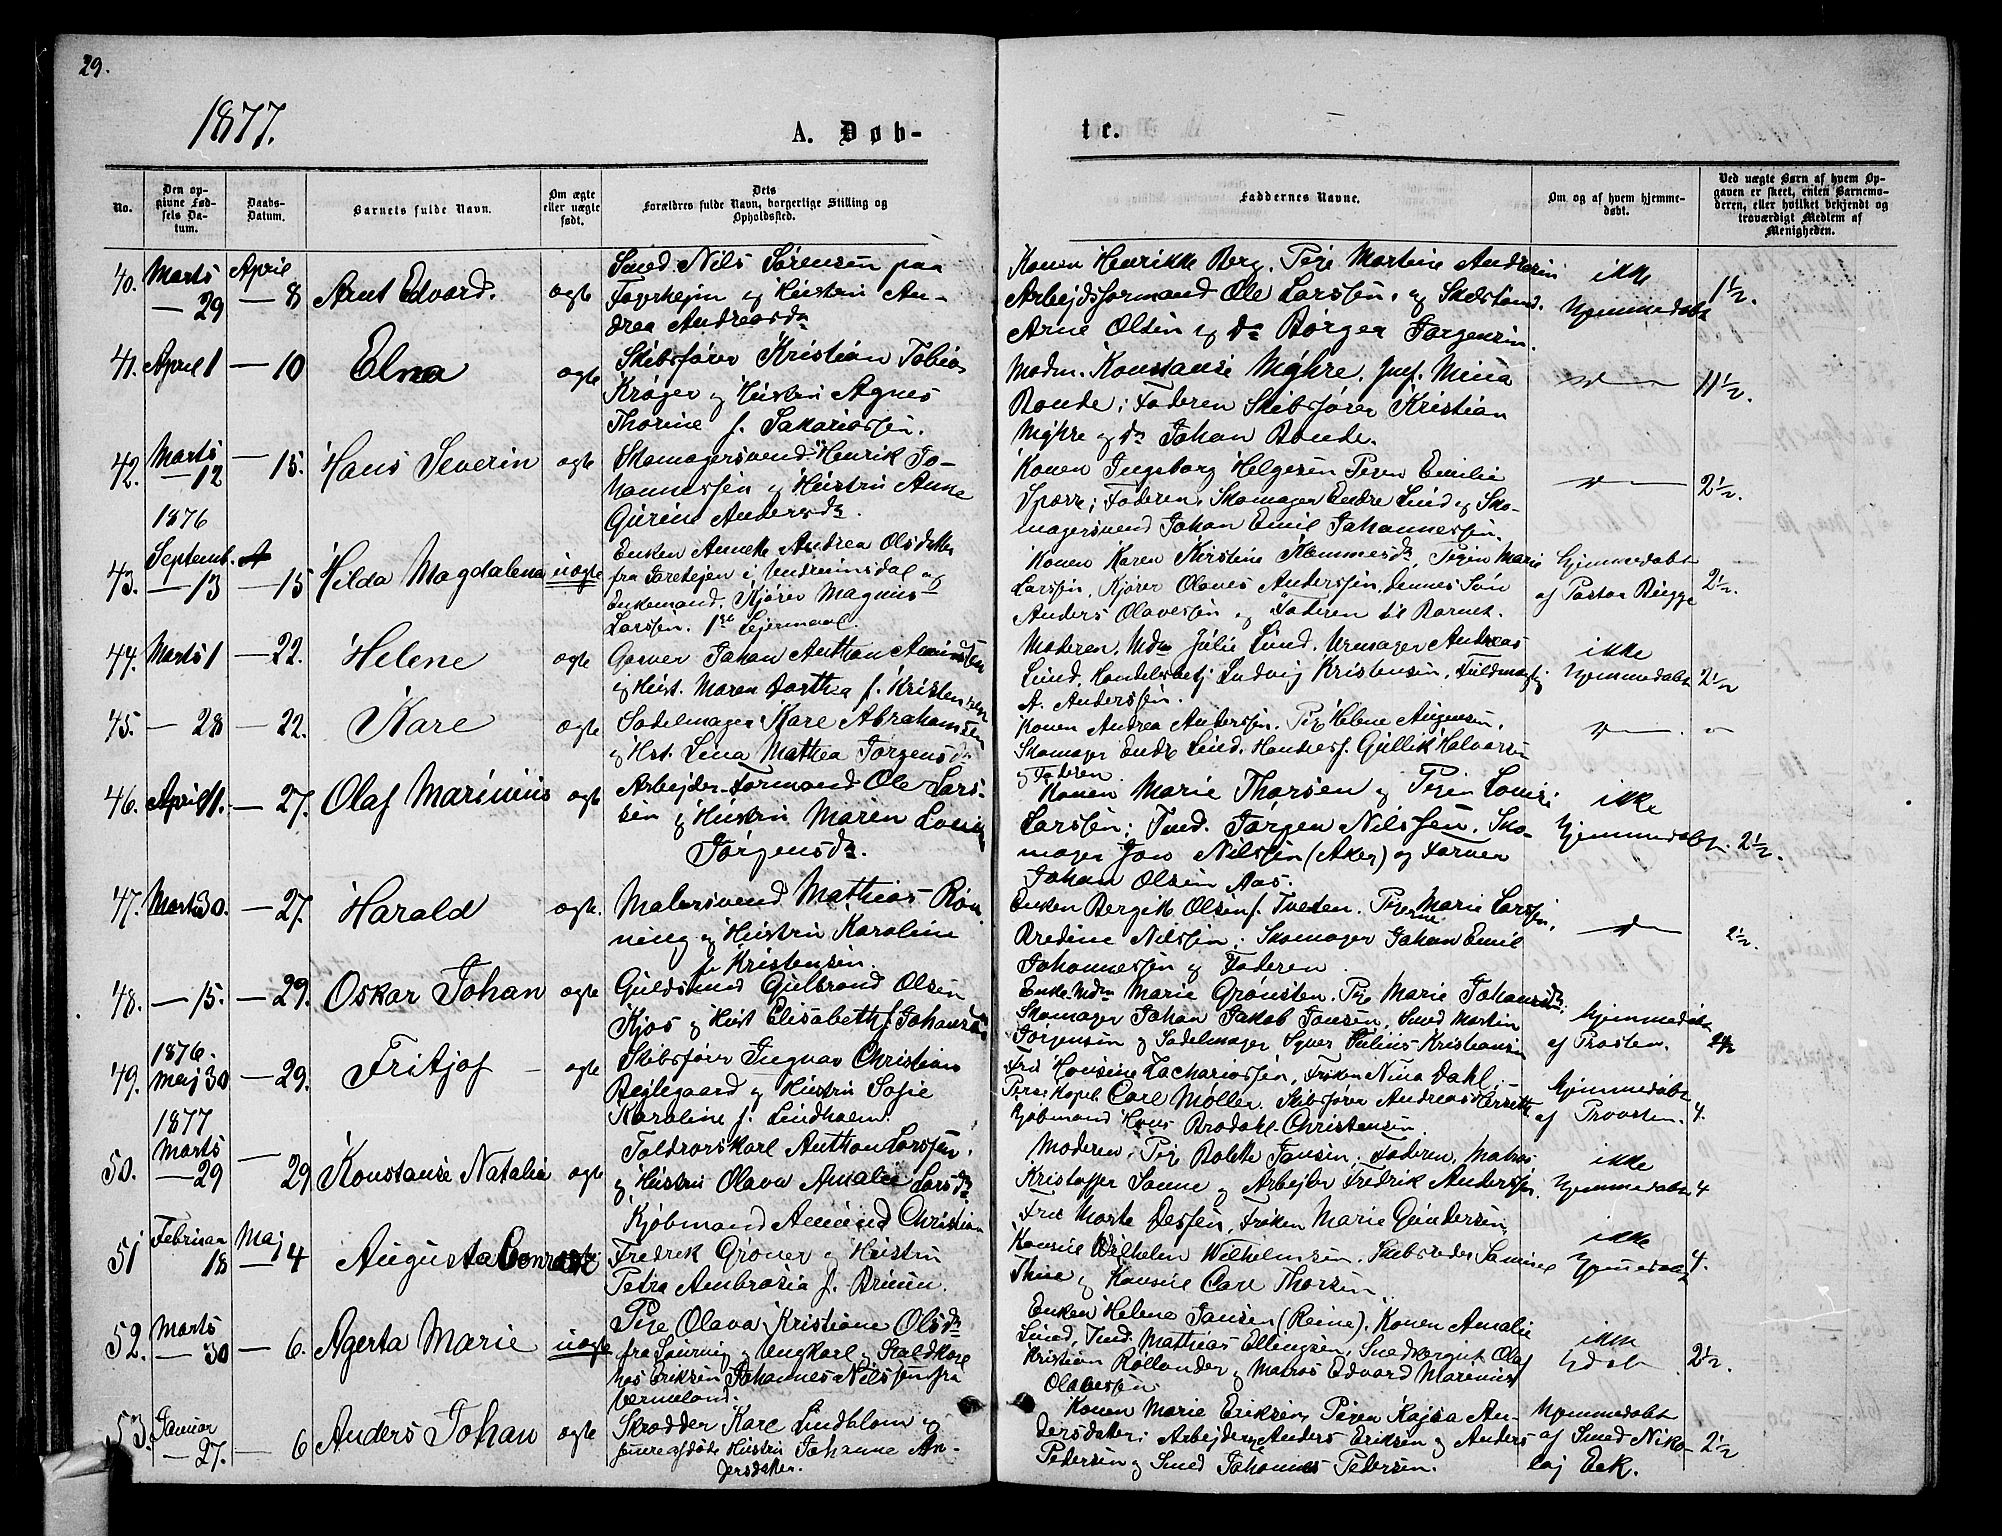 29.
1877.
A. Døb-
te.
No.
Den op-
givne Fød-
sels Da-
tum.
Daabs-
Datum.
Barnets fulde Navn.
Om ægte
eller uægte
født.
Dets
Forældres fulde Navn, borgerlige Stilling og
Opholdssted.
Faddernes Navne.
Om og af hvem hjemme-
døbt.
Ved uægte Børn af hvem Op-
gaven er skeet, enten Barnemo-
deren, eller hvilket bekjendt og
troværdigt Medlem af
Menigheden.
40. Marts 29 April 8 Arnt Edvard. ægte
Smed Nils Sørensen paa
og Hustru An-
drea Andreasdr
Konen Henrikke Berg, Pige Martine
Arbejdsformand Ole Larssen, og
Arne Olsen og do Børger Jørgensen.
ikke
hjemmedøbt
1½.
41. April 1 — 10 Elna ægte
Skibsfører Kristian Tobias
Krøger og Hustru Agnes
Thorine f. Sakariassen.
Madm. Konstanse Myhre, Jmf. Mina
Bonde; Faderen Skibsfører Kristian
Myhre og do Johan Bonde.
11½.
42. Marts — 12 — 15. Hans Severin ægte
Skomagersvend Henrik Jo-
hannessen og Hustru Anne
Gurine Andersdr.
Konen Ingeborg Helgesen Pigen Emilie
Sparre; Faderen, Skomager Endre Lund og Sko-
magersvend Johan Emil Johannessen.
2½.
1876
43. Septemb. — 13 — 15 Hilda Magdalena uægte
Enken Annette Andrea Olsdatter
fra
Enkemand, Kjører Magnus
Larssen. 1ste Lejermaal.
Konen Karen Kirstine Hannesdr, Pigen Marie
Larssen, Kjører Olaves Anderssen, dennes Søn
Anders Olavessen og Faderen til Barnet.
Hjemmedøbt
af Pastor Bugge
2½.
44. Marts 1 — 22. Helene ægte
Garver Johan Anthon Amundsen
og Hust. Maren Dorthea f. Kristensen
Moderen, Mdm Julie Lund, Urmager Andreas
Lund, Handelsbetj Ludvig Kristensen, Fuldmægtig
A. Anderssen.
ikke
hjemmedøbt
2½
45. — 28 — 22. Kare ægte
Sadelmager Kare Abrahamsen
og Hst. Lina Mathea Jørgensdr
Konen Andrea Anderssen, Pige Helene Augensen,
Skomager Endr Lund, Gullik Halvorsen
og Faderen.
46. April 11. — 27. Olaf Marinius ægte
Arbejder-Formand Ole Lars-
sen og Hustru Maren Lovise
Jørgensdr.
Konen Marie Thorsen og Pigen Lovise
Larssen; Smd. Jørgen Nilssen, Sko-
mager Jon Nilssen (Aker) og Farver
Johan Olsen Aas.
ikke
hjemmedøbt.
2½.
47. Marts 30. — 27. Harald ægte.
Malersvend Mathias Røn-
ning og Hustru Karoline
f. Kristensen.
Enken Bergite Olsen f. Tveten, Pigerne Marie Larssen,
Bredine Nilssen; Skomager Johan Emil
Johannessen og Faderen.
2½.
48. — 15. — 29. Oskar Johan ægte
Guldsmed Gulbrand Olsen
Kjøs og Hust Elisabeth f. Johansen
Enke Mdm Marie Grønsten, Pige Marie Johansdr.
Skomager Johan Jakob Jansen, Smed Martin
Jørgensen og Sadelmager Syver Julius Kristiansen
Hjemmedøbt
af Provsten.
2½
1876.
49. Maj 30 — 29. Fritjof — ægte
Skibsfører Ingvar Christian
Bejlegaard og Hustru Sofie
Karoline f. Lindholm.
Fru Konsine Zachariassen, Frøken Nina Dahl,
Pers. Kapel. Carl Møller, Skibsfører Andreas Herseth
Kjøbmand Hans Brodahl Christensen.
Hjemmedøbt
af Provsten.
4.
1877
50. Marts — 29 — 29 Konstanse Natalie ægte
Toldrorskarl Anthon Larssen
og Hustru Olava Amalie Larsdr
Moderen, Pige Bolette Jansen, Faderen, Matros
Kristoffer Sanne og Arbejder Fredrik Anderssen.
ikke
hjemmedøbt
4
51 Februar 18 Maj — 4 Augusta ægte
Kjøbmand Amund Christian
Fredrik Grøner og Hustru
Petra Ambrosia f. Bruun.
Fru Marte Jessen, Frøken Marie Gundersen
Konsul Wilhelm Wilhelmsen, Skibsreder Samuel
Thue og Konsul Carl Thorsen.
ikke
hjemmedøbt
4.
52. Marts — 30 — 6. Agerta Marie uægte
Pige Olava Kristiane Olsdr
fra og Ungkarl og Staldkarl
hos Eriksen Johannes Nilssen fra
Vermeland.
Enken Helena Jansen (Reine), Konen Amalie
Lund, Smd. Mathias Ellingsen, Olaf
Kristian Rollander og Matros Edvard Marenius
Olavessen
ikke
hjdøbt
2½.
53. Januar — 27. — 6 Anders Johan ægte
Skrædder Karl Lindblom og
Hustru Johanne An-
dersdatter.
Konen Marie Eriksen, Pigen Kajsa An-
dersdatter; Arbejderne Anders Eriksen og Anders
Pedersen og Smed Johannes Pedersen.
Hjemmedøbt
af Smed Niko-
laj Eek.
2½